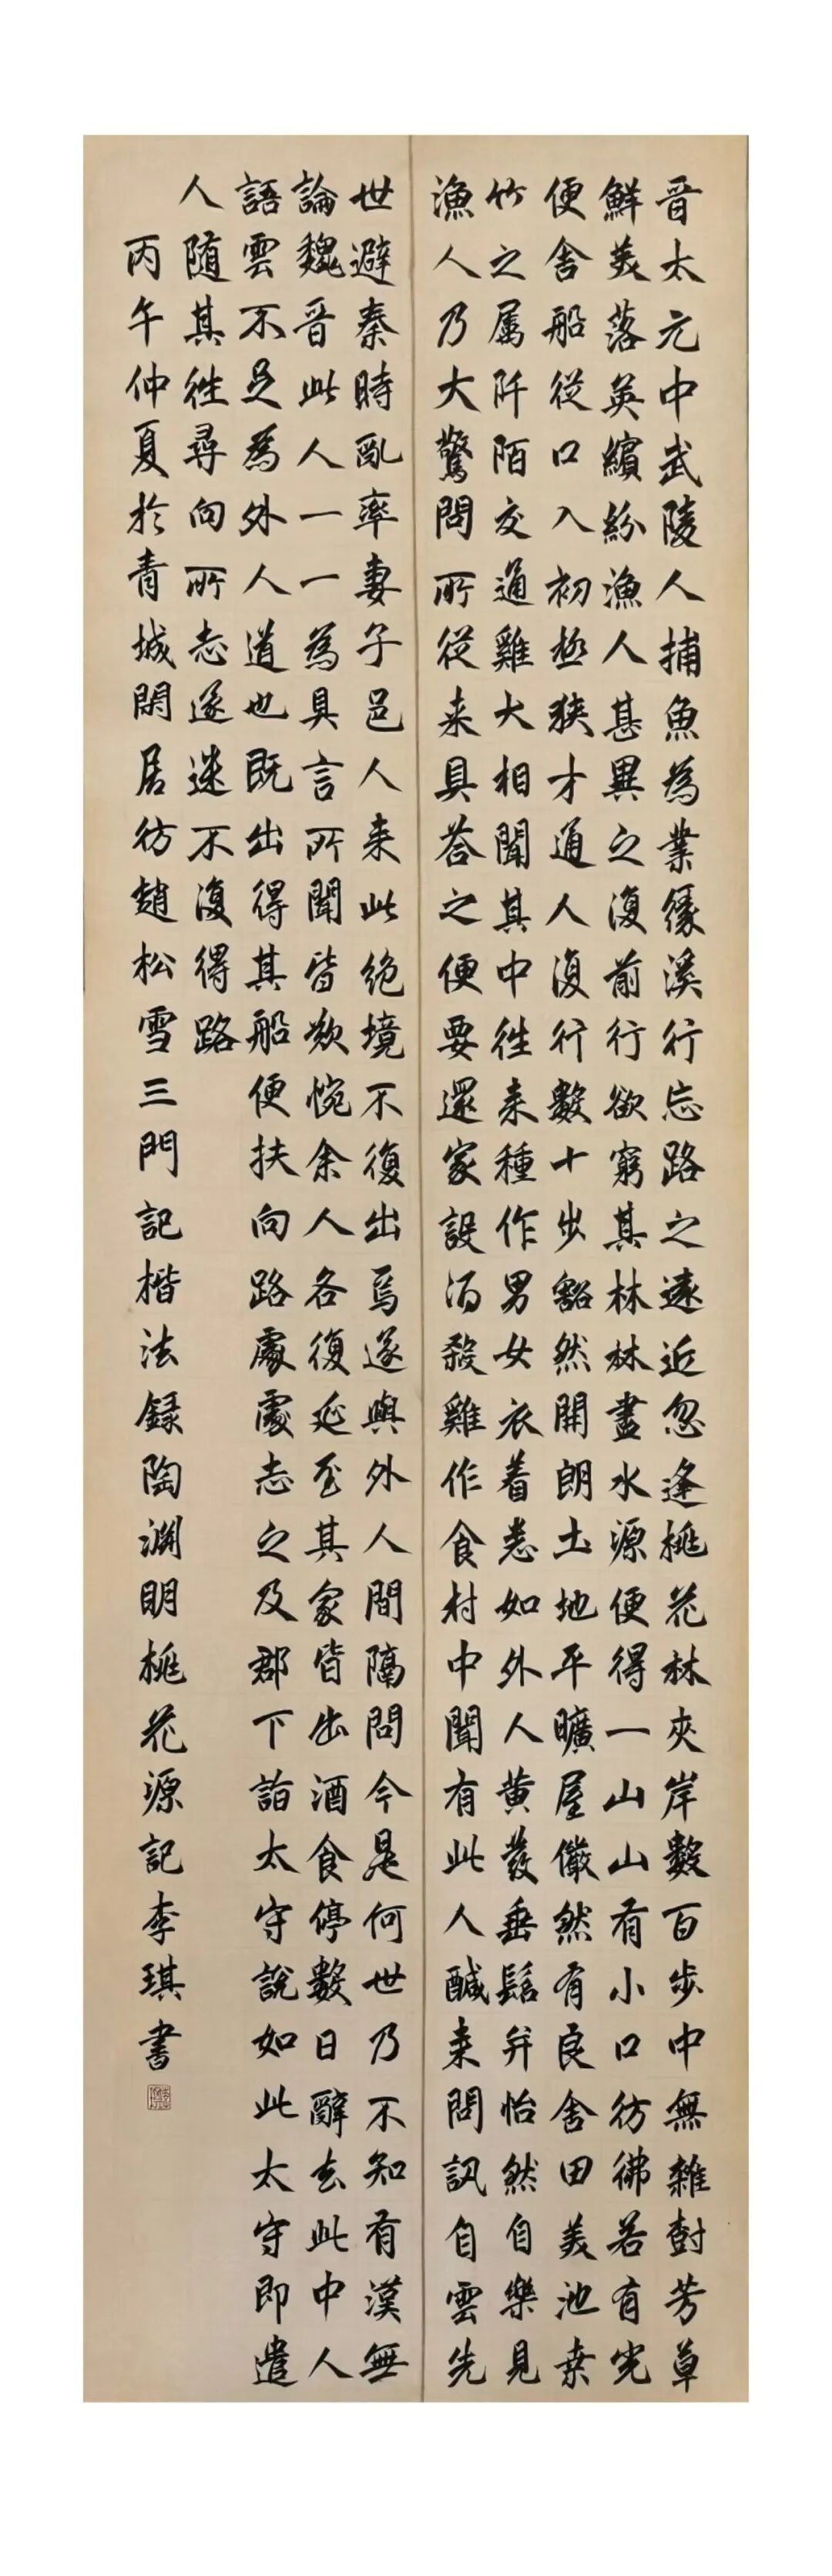 晋太元中武陵人捕魚為業缘溪行忘路之遠近忽逢桃花林夾岸數百步中無雜樹芳草
鮮美落英繽紛漁人甚異之復前行欲窮其林林盡水源便得一山山有小口彷彿若有光
便舍船從口入初極狹才通人復行數十步豁然開朗土地平曠屋儼然有良舍田美池桑
竹之属阡陌交通雞犬相聞其中往来種作男女衣着悉如外人黄發垂髫并怡然自樂見
漁人乃大驚問所從来具荅之便要還家設酒殺雞作食村中聞有此人醎来問訊自雲先
世避秦時亂率妻子邑人来此绝境不復出焉遂與外人間隔問今是何世乃不知有漢無
論魏晋此人一一為具言所聞皆歎惋余人各復延至其家皆出酒食停數日辭去此中人
語雲不足為外人道也既出得其船便扶向路處處志之及郡下詣太守說如此太守即遣
人随其往尋向所志遂迷不復得路
丙午仲夏於青城閑居彷趙松雪三門記楷法録陶淵明桃花源記李琪書